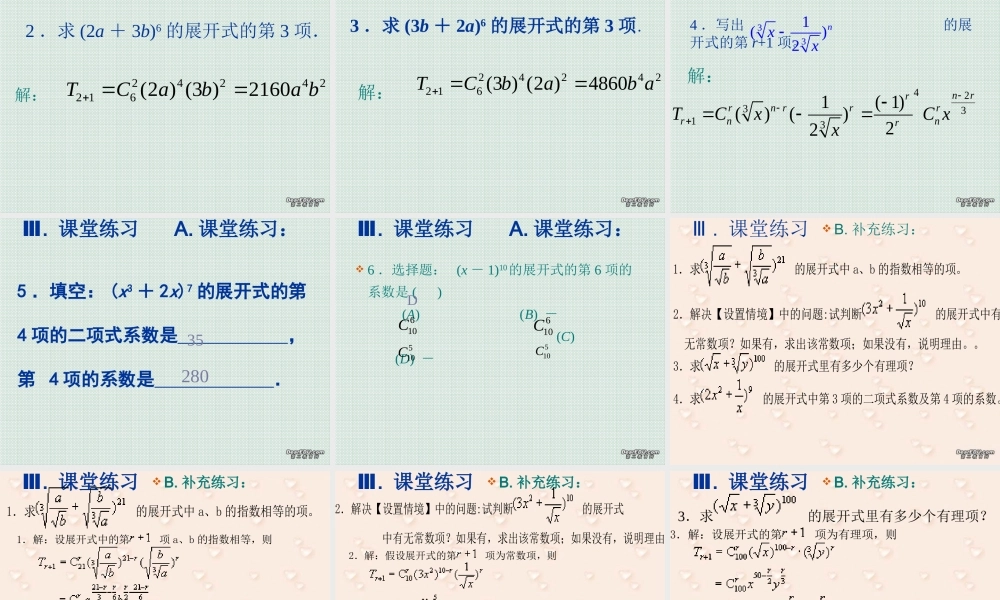 2．求 (2a ＋ 3b)⁶ 的展开式的第 3 项．
解：
T₂₊₁ = C₆²(2a)⁴(3b)² = 2160a⁴b²
3．求 (3b ＋ 2a)⁶ 的展开式的第 3 项．
解：
T₂₊₁ = C₆²(3b)⁴(2a)² = 4860b⁴a²
4．写出 (∛x - 1/(2∛x))ⁿ 的展
开式的第 r+1 项
解：
Ⅲ．课堂练习 A.课堂练习：
5．填空：(x³ ＋ 2x)⁷ 的展开式的第
4 项的二项式系数是 35 ，
第 4 项的系数是 280 ．
Ⅲ．课堂练习 A.课堂练习：
6．选择题： (x － 1)¹⁰ 的展开式的第 6 项的
系数是 ( D )
(A) C₁₀⁶ (B) － C₁₀⁶
(C) C₁₀⁵
(D) － C₁₀⁵
Ⅲ．课堂练习 B.补充练习：
1. 求 (∛(a/√b) + √(b/∛a))²¹ 的展开式中 a、b 的指数相等的项。
2. 解决【设置情境】中的问题:试判断 (3x² + 1/√x)¹⁰ 的展开式中有
无常数项？如果有，求出该常数项；如果没有，说明理由。。
3. 求 (√x + ∛y)¹⁰⁰ 的展开式里有多少个有理项？
4. 求 (2x² + 1/x)⁹ 的展开式中第 3 项的二项式系数及第 4 项的系数。
Ⅲ．课堂练习 B.补充练习：
1. 求 (∛(a/√b) + √(b/∛a))²¹ 的展开式中 a、b 的指数相等的项。
1．解：设展开式中的第 r + 1 项 a、b 的指数相等，则
Ⅲ．课堂练习 B.补充练习：
2. 解决【设置情境】中的问题:试判断 (3x² + 1/√x)¹⁰ 的展开式
中有无常数项？如果有，求出该常数项；如果没有，说明理由
2．解：假设展开式的第 r + 1 项为常数项，则
Tᵣ₊₁ = C₁₀ʳ(3x²)¹⁰⁻ʳ(1/√x)ʳ
Ⅲ．课堂练习 B.补充练习：
3．求 (√x + ∛y)¹⁰⁰ 的展开式里有多少个有理项？
3．解：设展开式的第 r + 1 项为有理项，则
Tᵣ₊₁ = C₁₀₀ʳ(√x)¹⁰⁰⁻ʳ·(∛y)ʳ